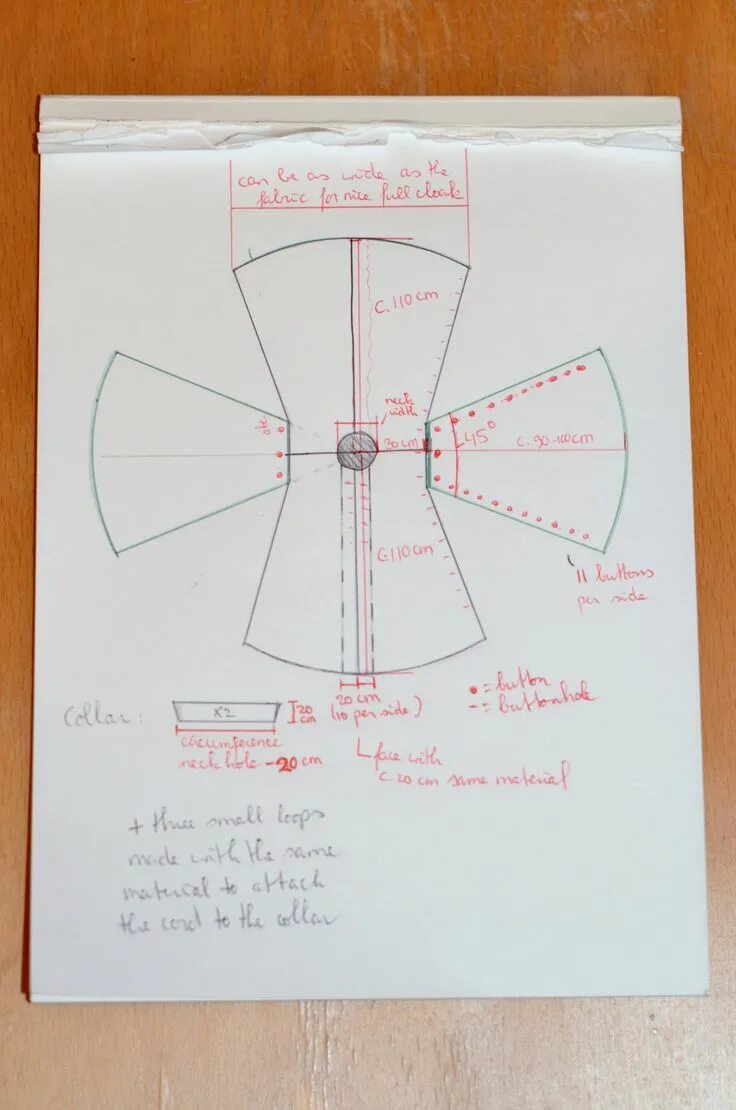 can be as wide as the
fabric for nice full cloak
c. 110 cm
neck
width
etc.
30 cm
45°
c. 90-100cm
c. 110 cm
11 buttons
per side
20 cm
(10 per side)
• = button
- = buttonhole
Collar:
x2
20
cm
circumference
neck hole - 20 cm
face with
c. 20 cm same material
+ three small loops
made with the same
material to attach
the cord to the collar